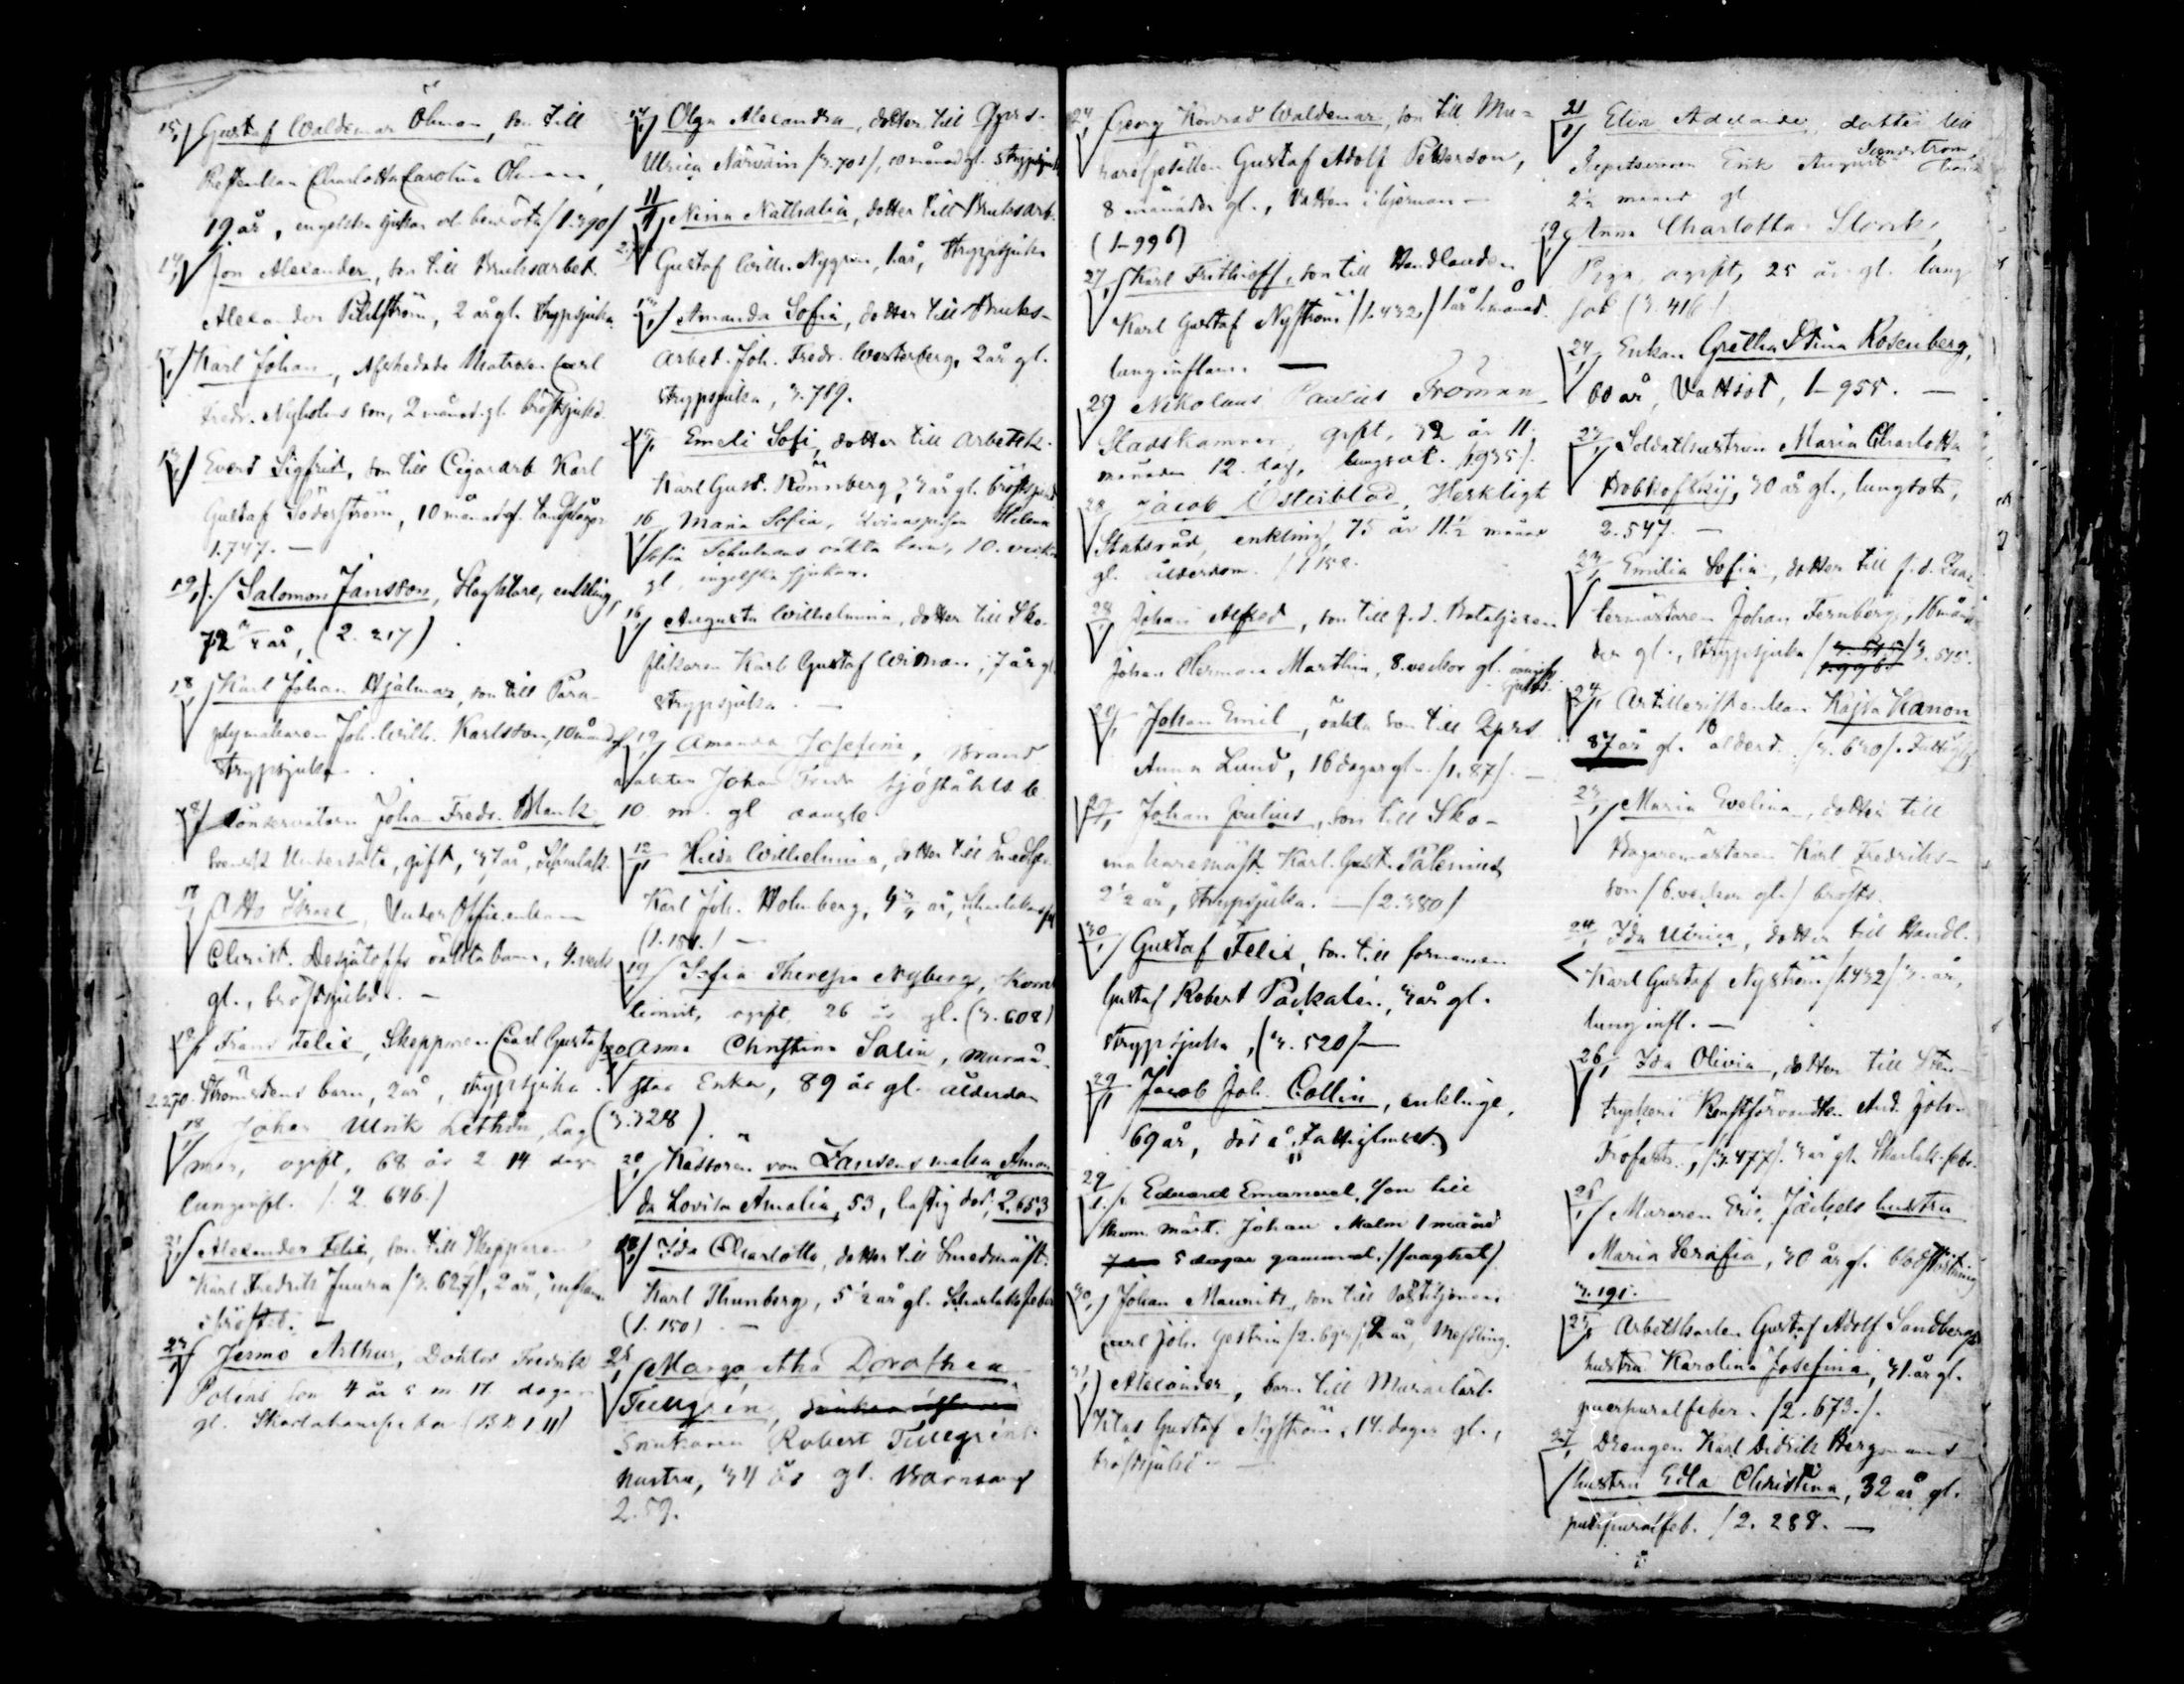 15/1 Gustaf Waldemar Öhman, son till
Charlotta Carolina Öhman,
19 år, engelska sjukan /1.390/
Jon Alexander, son till Bruksarbet.
Alexander 2 år gl. strypsjuka
Karl Johan, Afskedade Matrosen Carl
Fredr. Nyholms son, 2 månad. gl. bröstsjukd.
Evert Sigfrid, son till Cigararb. Karl
Gustaf Söderström, 10 månad gl.
1.747. —
19/1 Salomon Jansson, enkling,
72 år, (2.217)
18/1 Karl Johan Hjalmar, son till Para-
plymakaren Joh. Wilh. Karlsson, 10 månad
strypsjuka.
18/1 Konservatorn Johan Fredr.
Svensk Undersåte, gift, 37 år,
Otto Israel, Under Offic. enkan
Christ. oäkta barn, 4 veck
gl., bröstsjukd. —
18/1 Frans Felix, Skepparen Carl Gustaf
2.270. Strömstens barn, 2 år, strypsjuka.
18/1 Johan Ulrik Lethin,
ogift, 68 år 2 14 dagar
lunginfl. /2.646/
21/1 Alexander Felix, son till Skepparen
Karl Fredrik Juura /3.627/, 2 år, inflam
i bröstet. —
23/1 Jermo Arthur, Doktor Fredrik
son 4 år 5 m 17 dagar
gl. Skarlakansfeber
14/1 Olga Alexandra, dotter till Qprs.
Ulrica /3.701/, 10 månad gl. strypsjuk
11/1 Nina Nathalia, dotter till Bruksarb.
Gustaf Wilh. Nygren, 1 år, strypsjuka
Amanda Sofia, dotter till Bruks-
arbet. Joh. Fredr. Westerberg, 2 år gl.
strypsjuka, 3.719.
15/1 Emeli Sofi, dotter till arbetsk.
Karl Gust. Rönnberg, 3 år gl. bröstsjukd
16 Maria Sofia, Helena
Sofia Schulmans oäkta barn, 10. veckor
gl, engelska sjukan.
16/1 Augusta Wilhelmina, dotter till Sko-
flikaren Karl Gustaf Wiman, 7 år gl.
strypsjuka. —
19/1 Amanda Josefina, Brand
vakten Johan Fredr Sjöståhls b.
10 m. gl
12/1 Hilda Wilhelmina, dotter till
Karl Joh. Holmberg, 4 3/4 år,
(1.151.) —
19/1 Sofia Theresa Nyberg,
ogift, 26 år gl. (3.608)
20 Anna Christina Salin,
Enka, 89 år gl. ålderdom
(3.328)
20/1 Kassören von Zansens maka Aman
da Lovisa Amalia, 53, hastig död, 2.653
18/1 Ida Charlotta, dotter till Smedmäst.
Karl Thunberg, 5 1/2 år gl. Skarlakfeber
(1.150) —
25/1 Margaretha Dorothea
Tullgrén,
Snickaren Robert Tullgréns
hustru, 34 år gl. Barnsäng
2.59.
24/1 Georg Konrad Waldemar, son till Mu-
raregesällen Gustaf Adolf Petterson,
8 månader gl., vatten i hjernan —
(1-996)
27/1 Karl Frithioff, son till Handlanden
Karl Gustaf Nyström /1.432/ 1 år 1 månad.
lunginflam. —
25 Nikolaus Paulus Froman
Stadskamrer, gift, 32 år 11
månader 12. dag, lungsot. /1.935/.
28 Jacob Österblad, Herkligt
Statsråd, enkling, 75 år 11 1/2 månad
gl. ålderdom. /1.158.
28/1 Johan Alfred, son till f.d. Bataljonen
Johan Herman Marthin, 8. veckor gl.
21/1 Johan Emil, oäkta son till Qprs
Anna Lund, 16 dagar gl. /1.87/. —
29/1 Johan Julius, son till Sko-
makaremäst. Karl. Gust. Palenius
2 1/2 år, strypsjuka. — /2.380/
30/1 Gustaf Felix, son till formannen
Gustaf Robert Packalén, 3 år gl.
strypsjuka, (3.520/—
29/1 Jacob Joh. Collin, enkling,
69 år, död å Fattighuset.
29/1 Eduard Emanuel, son till
mäst. Johan Malm 1 månad
5 dagar gammal. /slaghat/
30/1 Johan Maurits, son till Postiljonen
Carl Joh. Gestrin /2.693/, 2 år, Messling.
31/1 Alexander, barn till Murarlärl.
Klas Gustaf Nyström, 14. dagar gl.,
bröstsjukd. —
21/1 Elin Adelaide, dotter till
Erik August Sandström
2 1/2 månad gl
19/1 Anna Charlotta Stork,
Piga, ogift, 25 år gl. lung
sot (3.416/
24/1 Enkan Gretha Stina Rosenberg,
60 år, Vattsot, 1-955. —
23/1 Soldathustrun Maria Charlotta
Bobkofskij, 30 år gl., lungsot,
2.547. —
23/1 Emilia Sofia, dotter till f.d.
Johan Fernberg, 10 måna-
der gl., strypsjuka /3.515.
24/1 Artilleristenkan Kajsa Kanon
87 år gl. ålderd. /3.630/. Fattighj
23/1 Maria Evelina, dotter till
Bagaremästaren Karl Fredriks-
son /6. veckor gl./ bröstsj.
24/1 Ida Ulrica, dotter till Handl.
Karl Gustaf Nyström /1.432/ 3. år,
lunginfl. —
26/1 Ida Olivia, dotter till Sten-
tryckeri Konstförvandten And. Joh.
/3.477/. 3 år gl. Skarlak. feb.
26/1 Muraren Eric Jäckels hustru
Maria Serafia, 30 år gl. blodstörtning
3.191.
25/1 Arbetskarlen Gustaf Adolf Sandbergs
hustru Karolina Josefina, 31 år gl.
puerpuralfeber. /2.673./.
27/1 Drengen Karl Didrik Bergmans
hustru Edla Christina, 32 år gl.
puerpuralfeb. /2.288. —